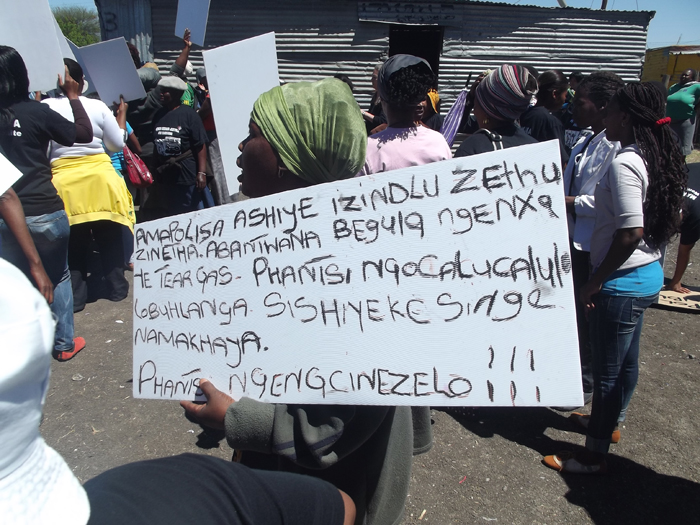 AMAPOLISA ASHIYE IZINDLU ZETHU
ZINETHA. ABANTWANA BEGULA NGENXA
YE TEAR GAS - PHANTSI NGOCALUCALULO
LOBUHLANGA. SISHIYEKE SINGE
NAMAKHAYA.
PHANTSI NGENGCINEZELO !!!